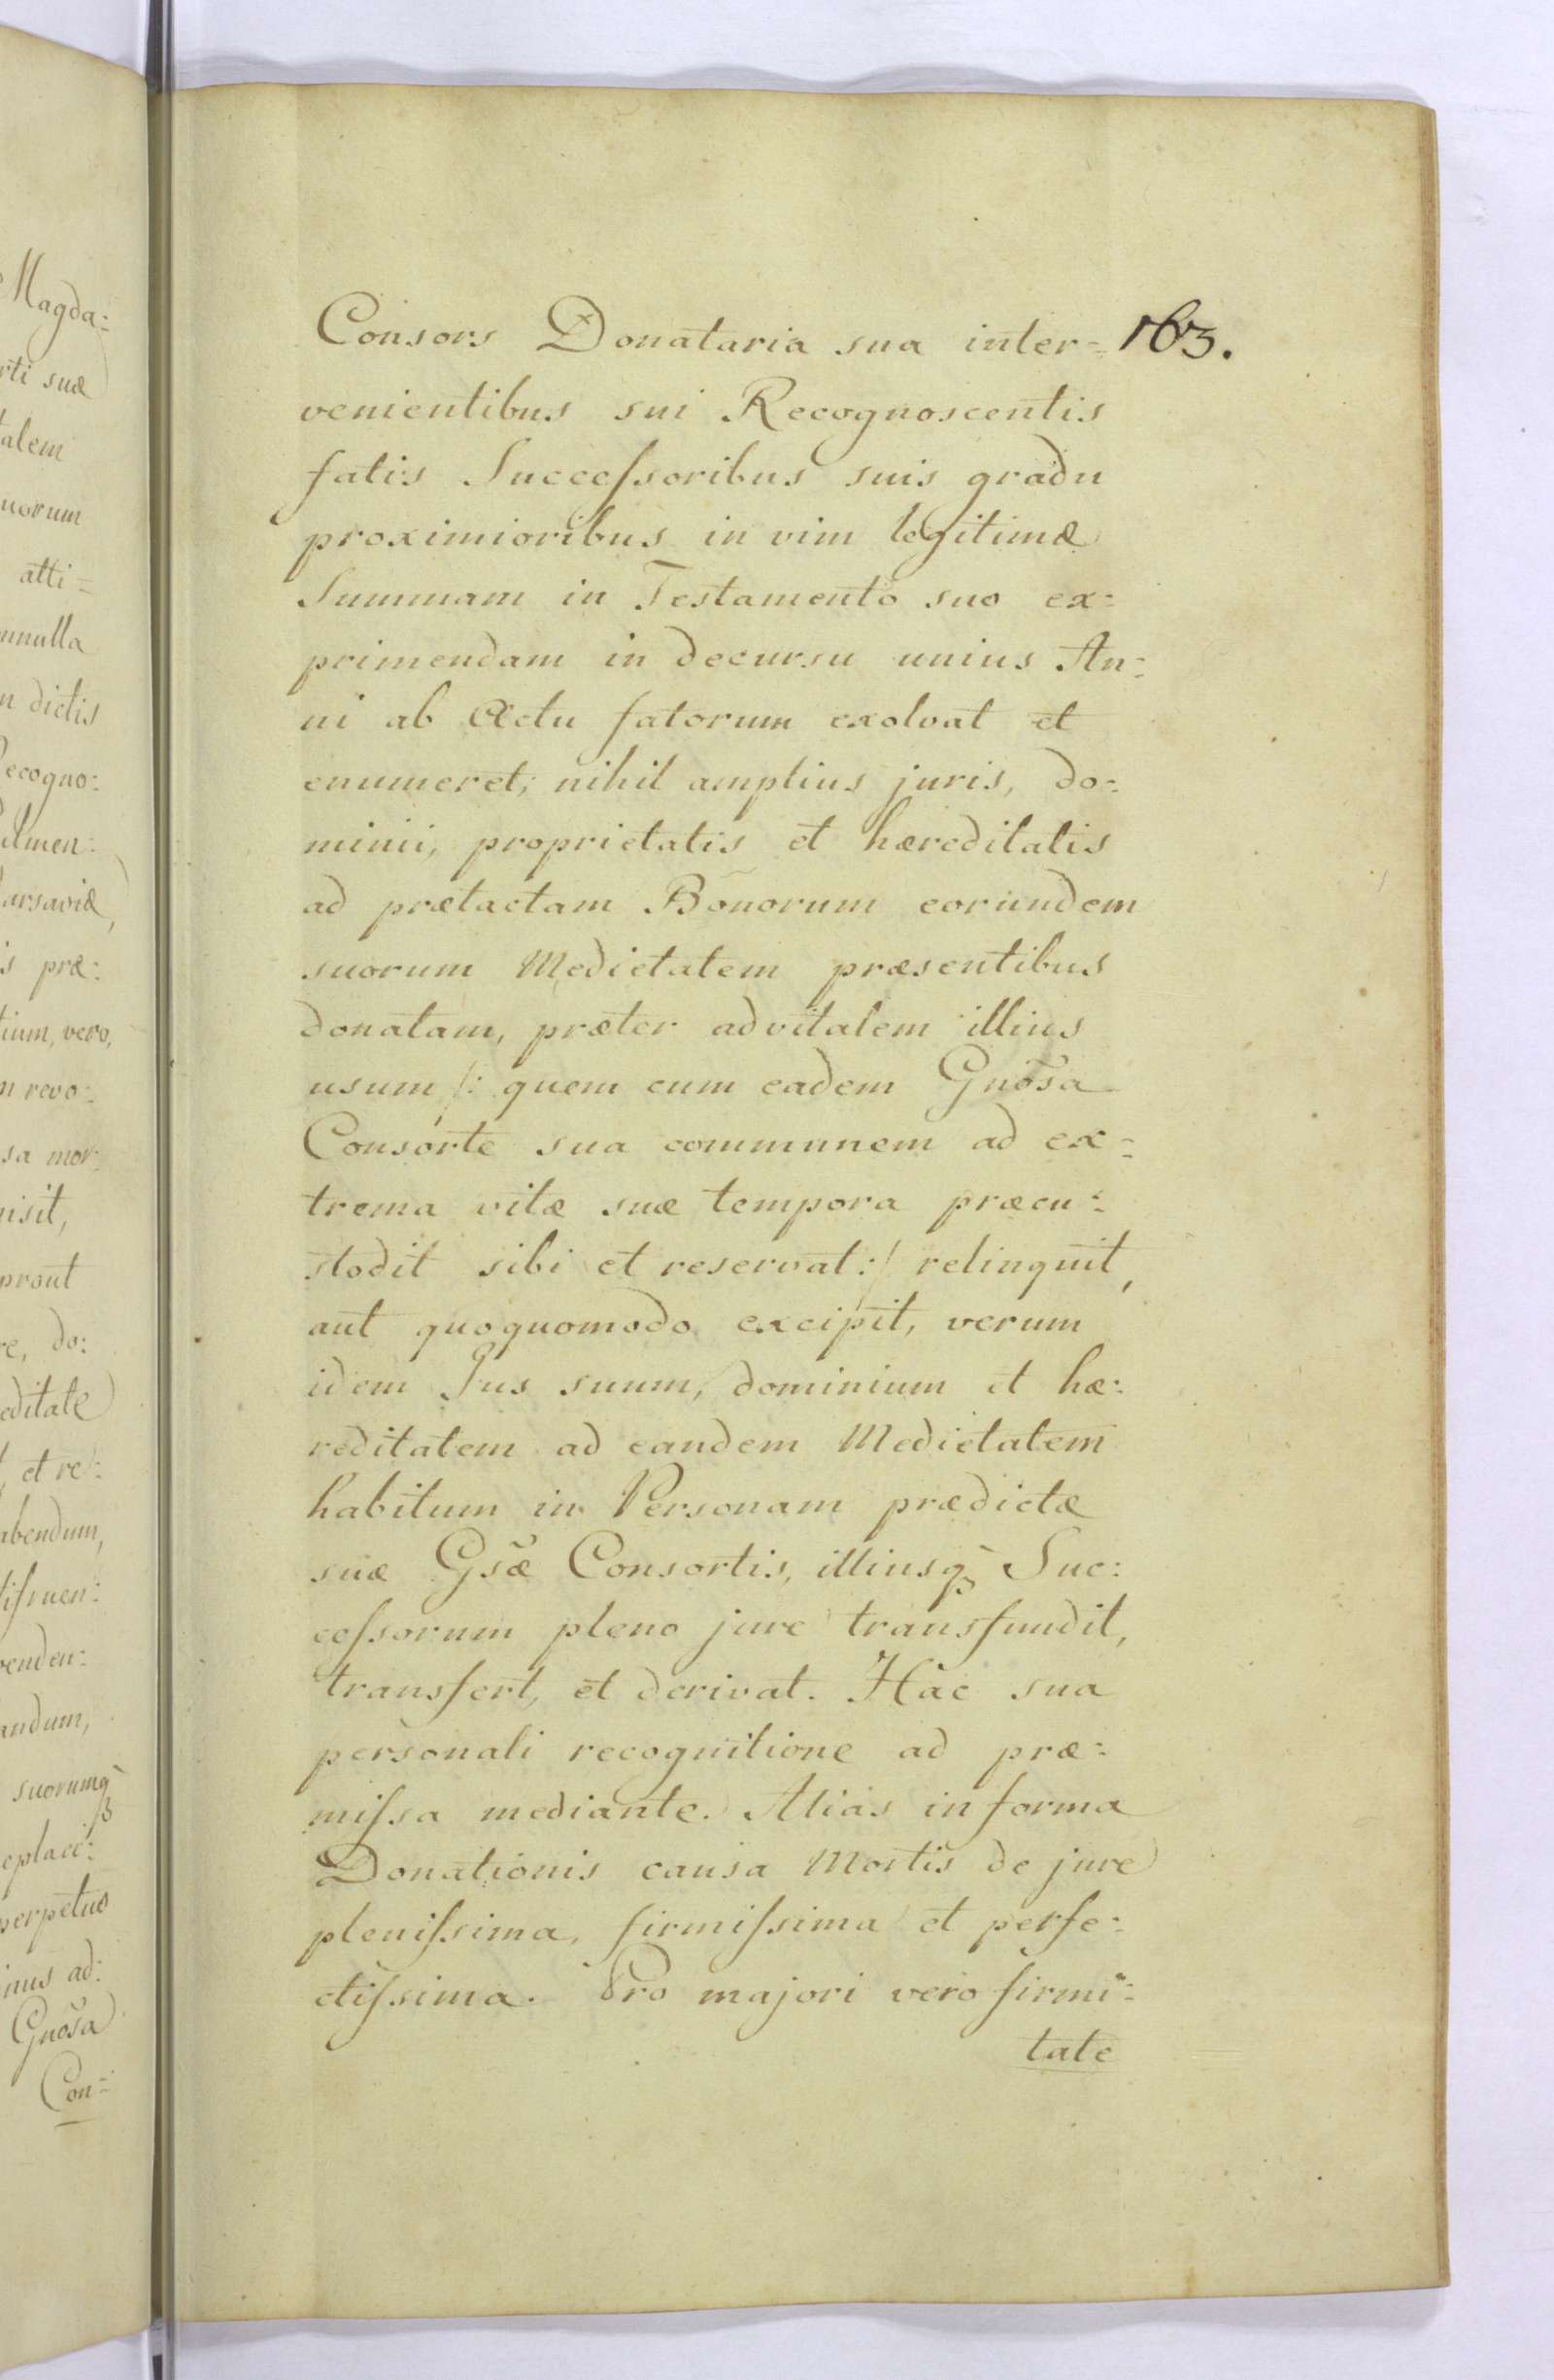 Magda:
rti suæ
talem
uorum
atti=
nnulla
n dictis
Recogno:
ulmen:
arsaviæ,
is præ:
tium, vero,
m revo:
sa mor:
nisit,
prout
re, do:
editate
et re:
abendum,
venden:
andum,
suorumqꝫ
eplaci:
perpetuo
inus ad:
Gnõsa
Con=
163.
Consors Donataria sua inter=
venientibus sui Recognoscentis
fatis Succeſsoribus suis gradu
proximioribus in vim legitimæ
Summam in Testamento suo ex:
primendam in decursu unius An:
ni ab Actu fatorum exolvat et
enumeret; nihil amplius juris, do:
minii, proprietatis et hæreditatis
ad prætactam Bonorum eorundem
suorum Medietatem præsentibus
donatam, præter advitalem illius
usum /: quem cum eadem Gnõsa
Consorte sua communem ad ex:
trema vitæ suæ tempora præcu:
stodit sibi et reservat :/ relinquit,
aut quoquomodo excipit, verum
idem Jus suum, dominium et hæ:
reditatem ad eandem Medietatem
habitum in Personam prædictæ
suæ Gsæ̃ Consortis, illiusqꝫ Suc:
ceſsorum pleno jure transfundit,
transfert, et derivat. Hac sua
personali recognitione ad præ:
miſsa mediante. Alias in forma
Donationis causa Mortis de jure
pleniſsima, firmiſsima et perfe:
ctiſsima. Pro majori vero firmi:
tate